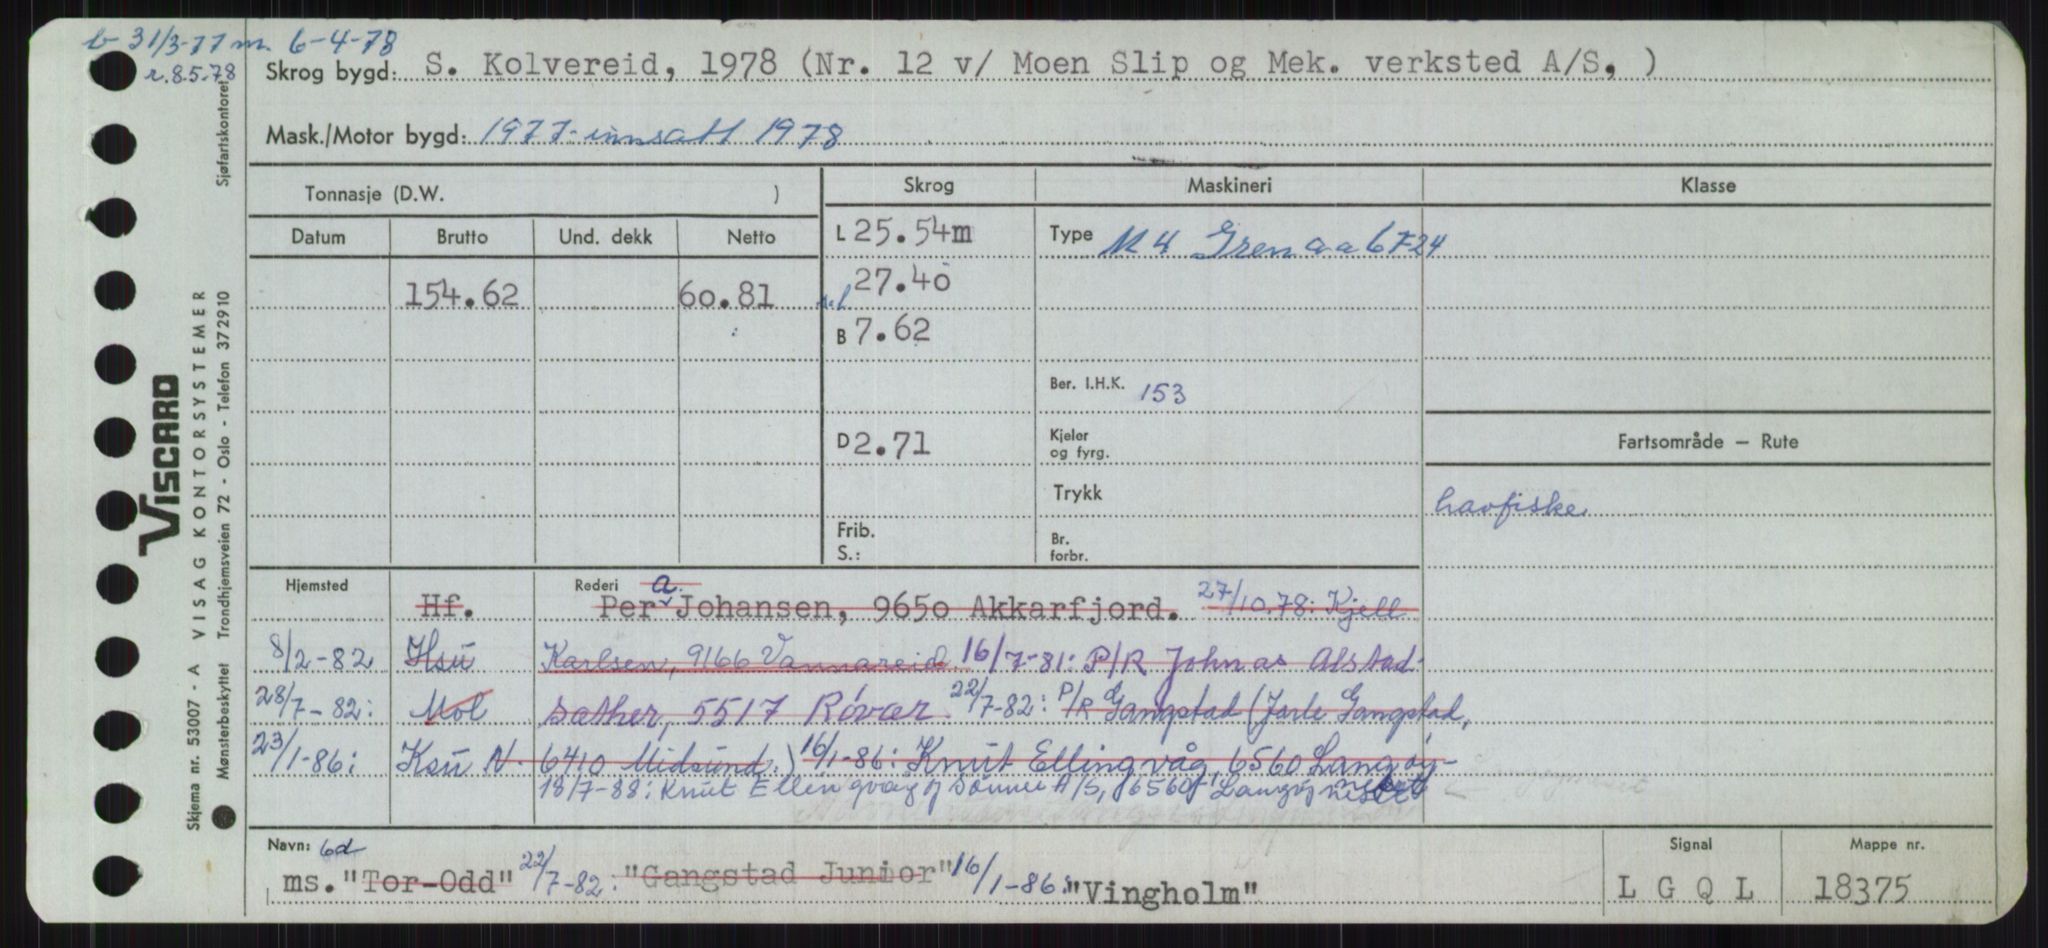 b-31/3-77 m. 6-4-78
r.8.5.78
Skrog bygd: S. Kolvereid, 1978 (Nr. 12 v/ Moen Slip og Mek. verksted A/S, )
Mask./Motor bygd: 1977-innsatt 1978
Tonnasje (D.W. )
Skrog Maskineri Klasse
Datum Brutto Und. dekk Netto
L 25.54m
Type M 4 Grenaa 6F24
154.62 60.81
27.40
B 7.62
Ber. I.H.K. 153
D 2.71
Kjeler og fyrg.
Fartsområde – Rute
Trykk
havfiske
Frib. S.:
Br. forbr.
Hjemsted Rederi
Hf. Per a. Johansen, 9650 Akkarfjord. 27/10.78: Kjell
8/2-82 Hsu Karlsen, 9166 Vannareid 16/7-81: P/R Johnas Alstad-
28/7-82: Mol sæther, 5517 Røvær. 22/7-82: P/R Gangstad (Jarle Gangstad,
23/1-86: Ksu N. 6410 Midsund.) 16/1-86: Knut Ellingvåg, 6560 Langøy-
18/7-88: Knut Ellingvåg & Sønner A/S, 6560 Langøyneset
Navn: 6d
ms. "Tor-Odd" 22/7-82: "Gangstad Junior" 16/1-86: "Vingholm"
Signal
L G Q L
Mappe nr.
18375
Sjøfartskontoret
VISCARD
Skjema nr. 53007 - A VISAG KONTORSYSTEMER
Mønsterbeskyttet Trondhjemsveien 72 - Oslo - Telefon 372910